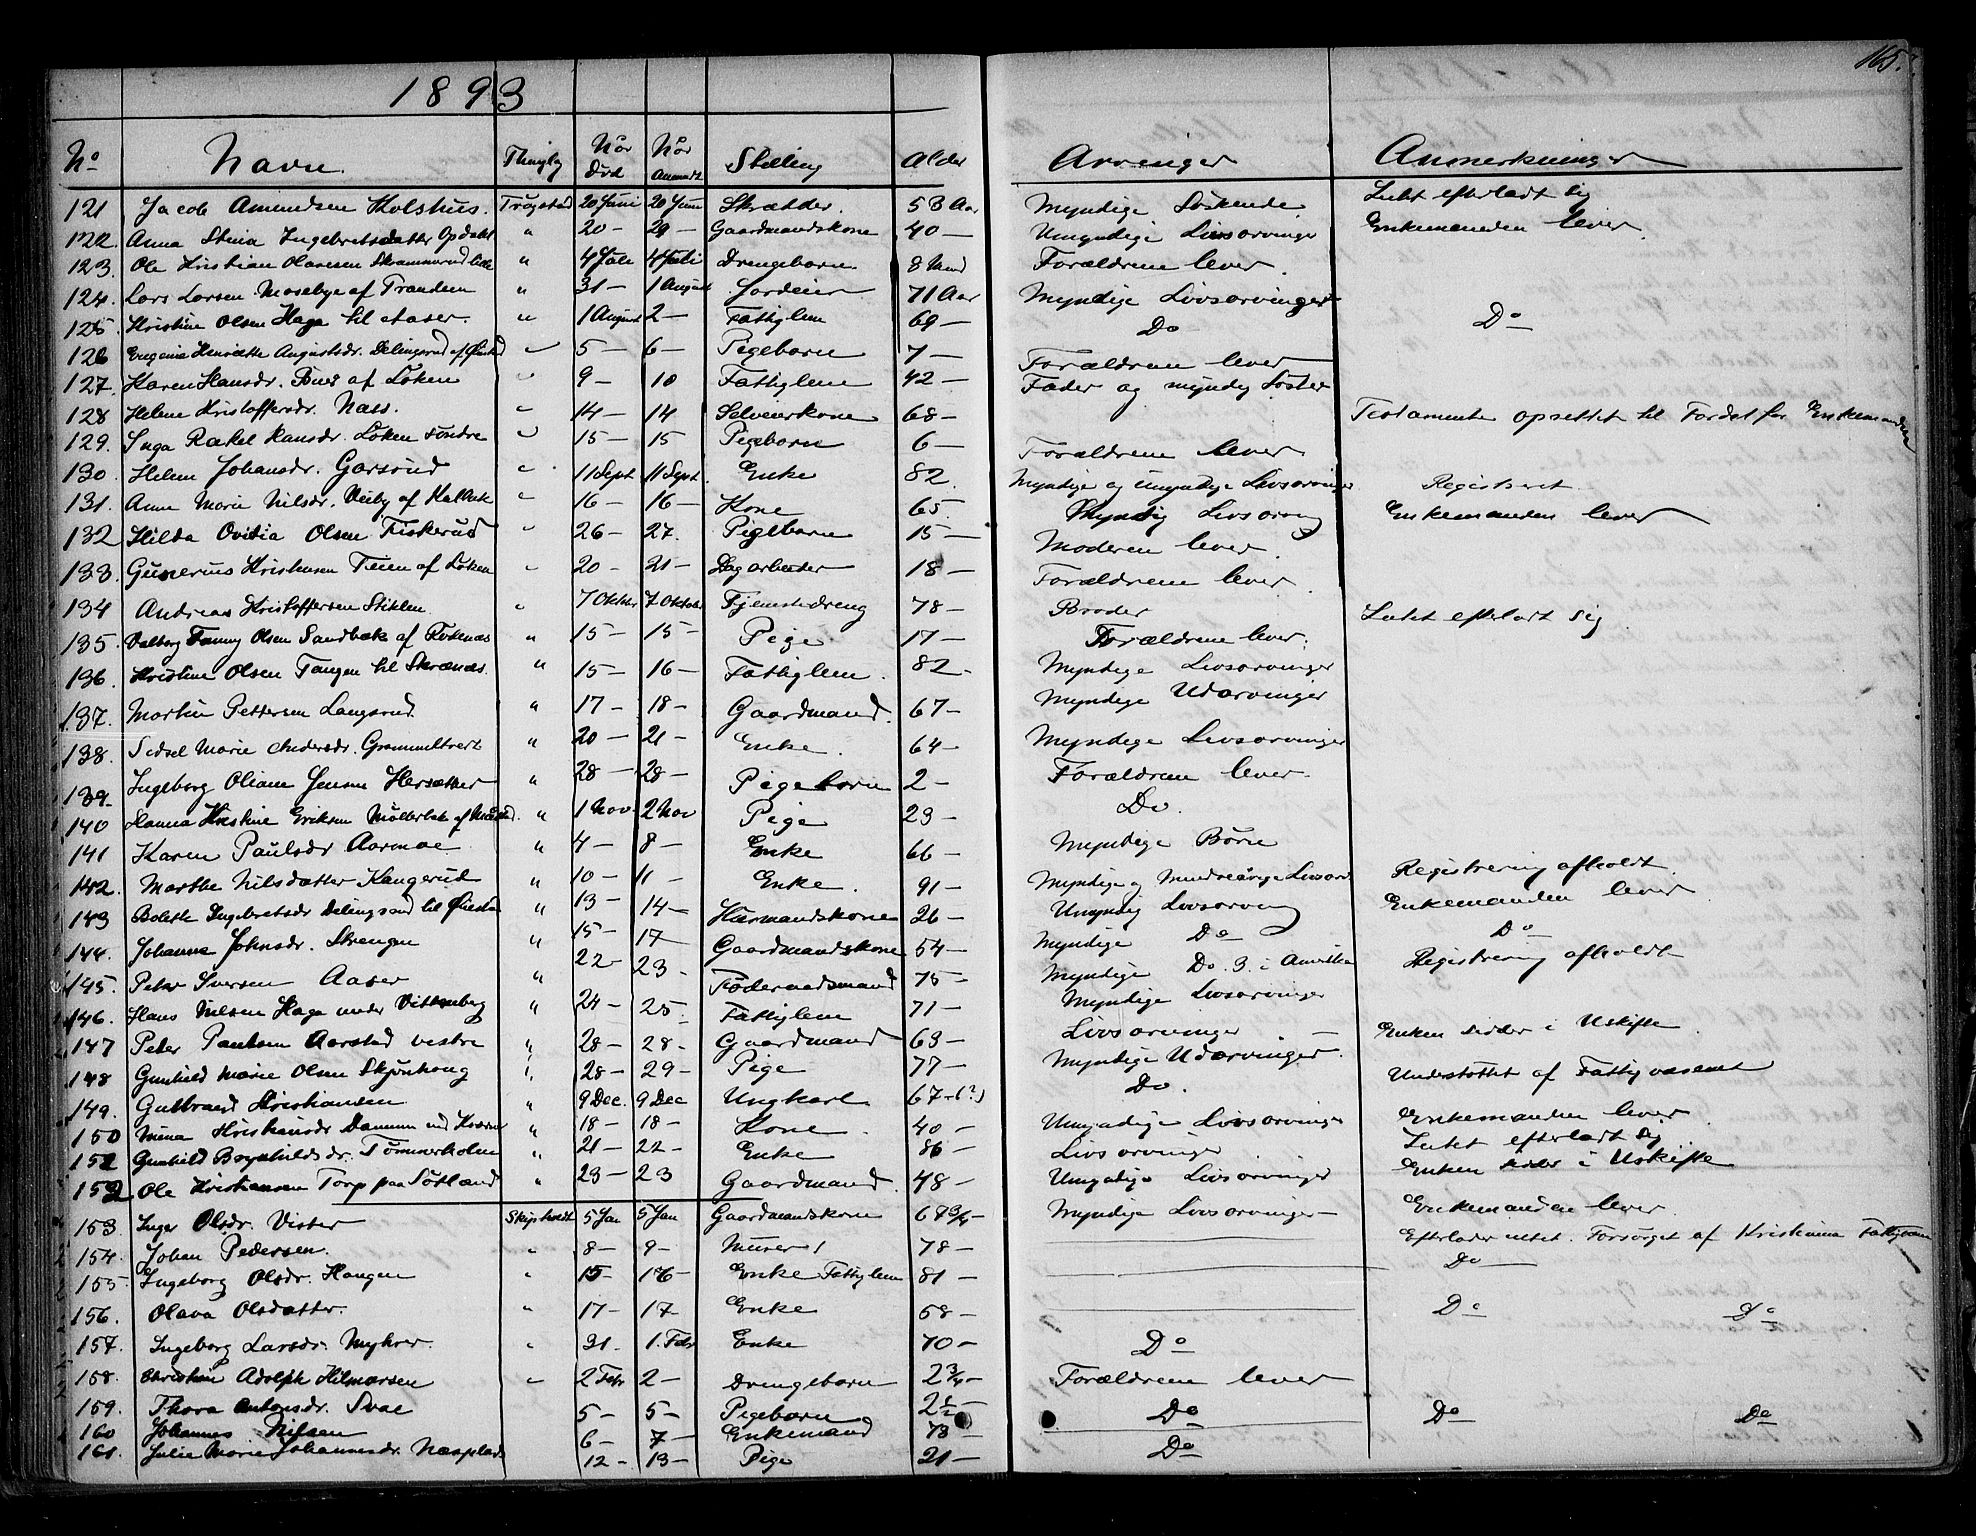 1893
165.
No Navn Thinglag Når Død Når Anmeldt Stilling Alder Arvinger Anmerkninger
121 Jacob Amundsen Trøgstad 20 Juni 20 Juni Skrædder. 53 Aar Myndige Søskende Intet efterladt sig
122. Anna Stina Ingebretsdatter Opdahl " 20 — 29 — Gaardmandskone 40 — Umyndige Livsarvinger Enkemanden lever
123. Ole Kristian Olavesen Skammerud lille " 4 Juli 4 Juli Drengebarn 8 Mnd Forældrene lever.
124. Lars Larsen Mosebye af Trandem " 31 — 1 August Jordeier 71 Aar Myndige Livsarvinger
125. Kristine Olsen Haga til Aaser. " 1 August 2 — Fattiglem 69 — Do Do
126 Eugenie Henriette Augustsdr. Delingsrud af " 5 — 6 — Pigebarn 7 — Forældrene lever
127. Karen Hansdr. af Løken " 9 — 10 Fattiglem 42 — Fader og myndig Søster
128 Helene Kristoffersdr. Næss. " 14 — 14 Selveierkone 68 — Testamente opsettet til Fordel for Enkemanden
129. Inga Rakel Hansdr. Løken søndre " 15 — 15 Pigebarn 6 — Forældrene lever
130. Helene Johansdr. Garsrud " 11 Sept 11 Sept. Enke 82. Myndige og umyndige Livsarvinger Registreret
131. Anne Marie Nilsdr. Visby af " 16 — 16 — Kone 65. Myndig Livsarving Enkemanden lever
132 Hilda Ovidia Olsen Fiskerud " 26 — 27. Pigebarn 15 — Moderen lever.
133. Gunerius Kristiansen Tuen af Løken " 20 — 21 — Dagarbeider 18 — Forældrene lever.
134 Andreas Kristoffersen Stiklen " 7 Oktober 7 Oktober Tjenestedreng 78 — Broder Intet efterladt sig
135. Valborg Fanny Olsen Sandbæk af " 15 — 15 — Pige 17 — Forældrene lever.
136. Kristine Olsen Tangen til Skrænæs. " 15 — 16 — Fattiglem. 82 — Myndige Livsarvinger
137. Martin Pettersen Langsrud. " 17 — 18 — Gaardmand. 67 — Myndige Udarvinger
138. Sidsel Marie Andersdr. Grammeltvedt " 20 — 21 — Enke. 64 — Myndige Livsarvinger
139. Ingeborg Oliane Jensen Hersætter " 28 — 28 — Pigebarn 2 — Forældrene lever.
140 Hanna Kristine Eriksen Møllerbak af " 1 Nov. 2 Nov Pige 23 — Do.
141 Karen Paulsdr Aarmoe. " 4 — 8 — Enke 66 — Myndige Børn
142. Marthe Nilsdatter Kangerud " 10 — 11 — Enke. 91 — Myndige og Mindreårige Livsarv. Registrering afholdt.
143 Bolette Ingebretsdr Delingsrud til " 13 — 14 — Huusmandskone 26 — Umyndig Livsarving Enkemanden lever
144. Johanne Johnsdr. Strengen " 15 — 17 Gaardmandskone 54 — Myndige Do Do
145. Peter Iversen Aaser " 22 — 23 — Føderaadsmand 75 — Myndige Do. 3. i Amerika Registrering afholdt
146. Hans Nilsen Haga under Vittenberg " 24 — 25 — Fattiglem 71 — Myndige Livsarvinger
147 Peter Paulsen Aarstad vestre " 28 — 28 — Gaardmand 63 — Livsarvinger — Enken sidder i Uskifte
148 Gunhild Marie Olsen Skjønhaug " 28 — 29 — Pige 77 — Myndige Udarvinger. Understøttet af Fattigvæsenet
149. Gulbrand Kristiansen " 9 Dec. 9 Dec Ungkarl 67 — (?) Do.
150 Mina Kristiansdr Dammen " 18 — 18 — Kone 40 — Umyndige Livsarvinger Enkemanden lever
151 Gunhild Brynhildsdr. Tømmerholen " 21 — 22 — Enke 86 — Livsarvinger Intet efterladt sig
152 Ole Kristiansen Torp paa Søtland " 23 — 23 Gaardmand 48 — Umyndige Livsarvinger Enken sidder i Uskifte
153. Inger Olsdr. Vister Skiptvedt 5 Jan 5 Jan Gaardmandskone 67 3/4 — Myndige Livsarvinger — Enkemanden lever.
154. Johan Pedersen. " 8 — 9 — Murer 78 — Efterlader intet. Forsørget af Kristiania Fattigvæsen
155. Ingeborg Olsdr. Haugen " 15 — 16 — Enke Fattiglem 81 — Do
156. Olava Olsdatter. " 17 — 17 — Enke 58 — Do Do
157. Ingeborg Larsdr. Myhrer. " 31. 1. Febr Enke 70 — Do
158. Christian Adolph Hilmarsen " 2 Febr 2 — Drengebarn 2 3/4 — Forældrene lever
159. Thora Antonsdr. Svae 5 — 5 — Pigebarn 2 1/2 — Do Do Do
160 Johannes Nilsen 6 — 7 — Enkemand 73 —
161. Julie Marie Johannesdr. Næsplads 12 — 13 — Pige 21 — Do